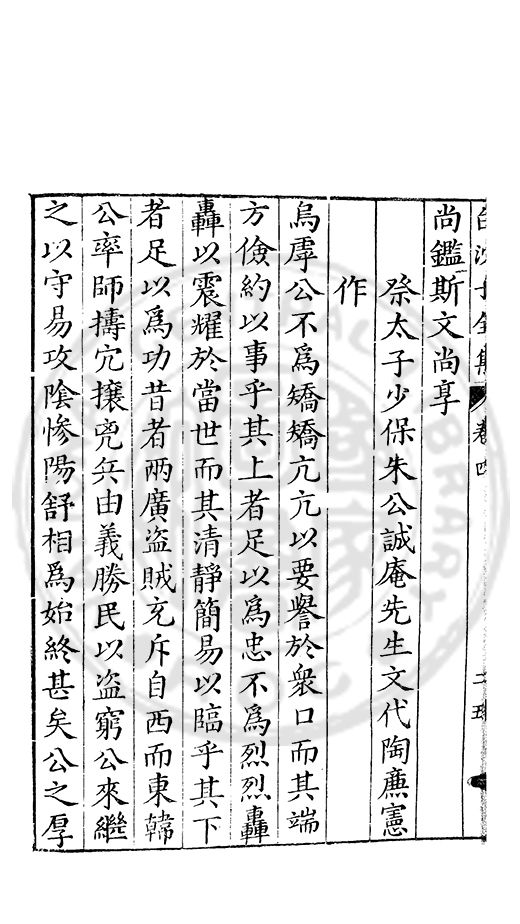 白沙子全集 卷四
尚鑑斯文尚享
祭太子少保朱公誠庵先生文代陶廉憲
作
烏虖公不爲矯矯亢亢以要譽於衆口而其端
方儉約以事乎其上者足以爲忠不爲烈烈轟
轟以震耀於當世而其清靜簡易以臨乎其下
者足以爲功昔者兩廣盗賊充斥自西而東韓
公率師擣穴攘兇兵由義勝民以盗窮公來繼
之以守易攻陰慘陽舒相爲始終甚矣公之厚